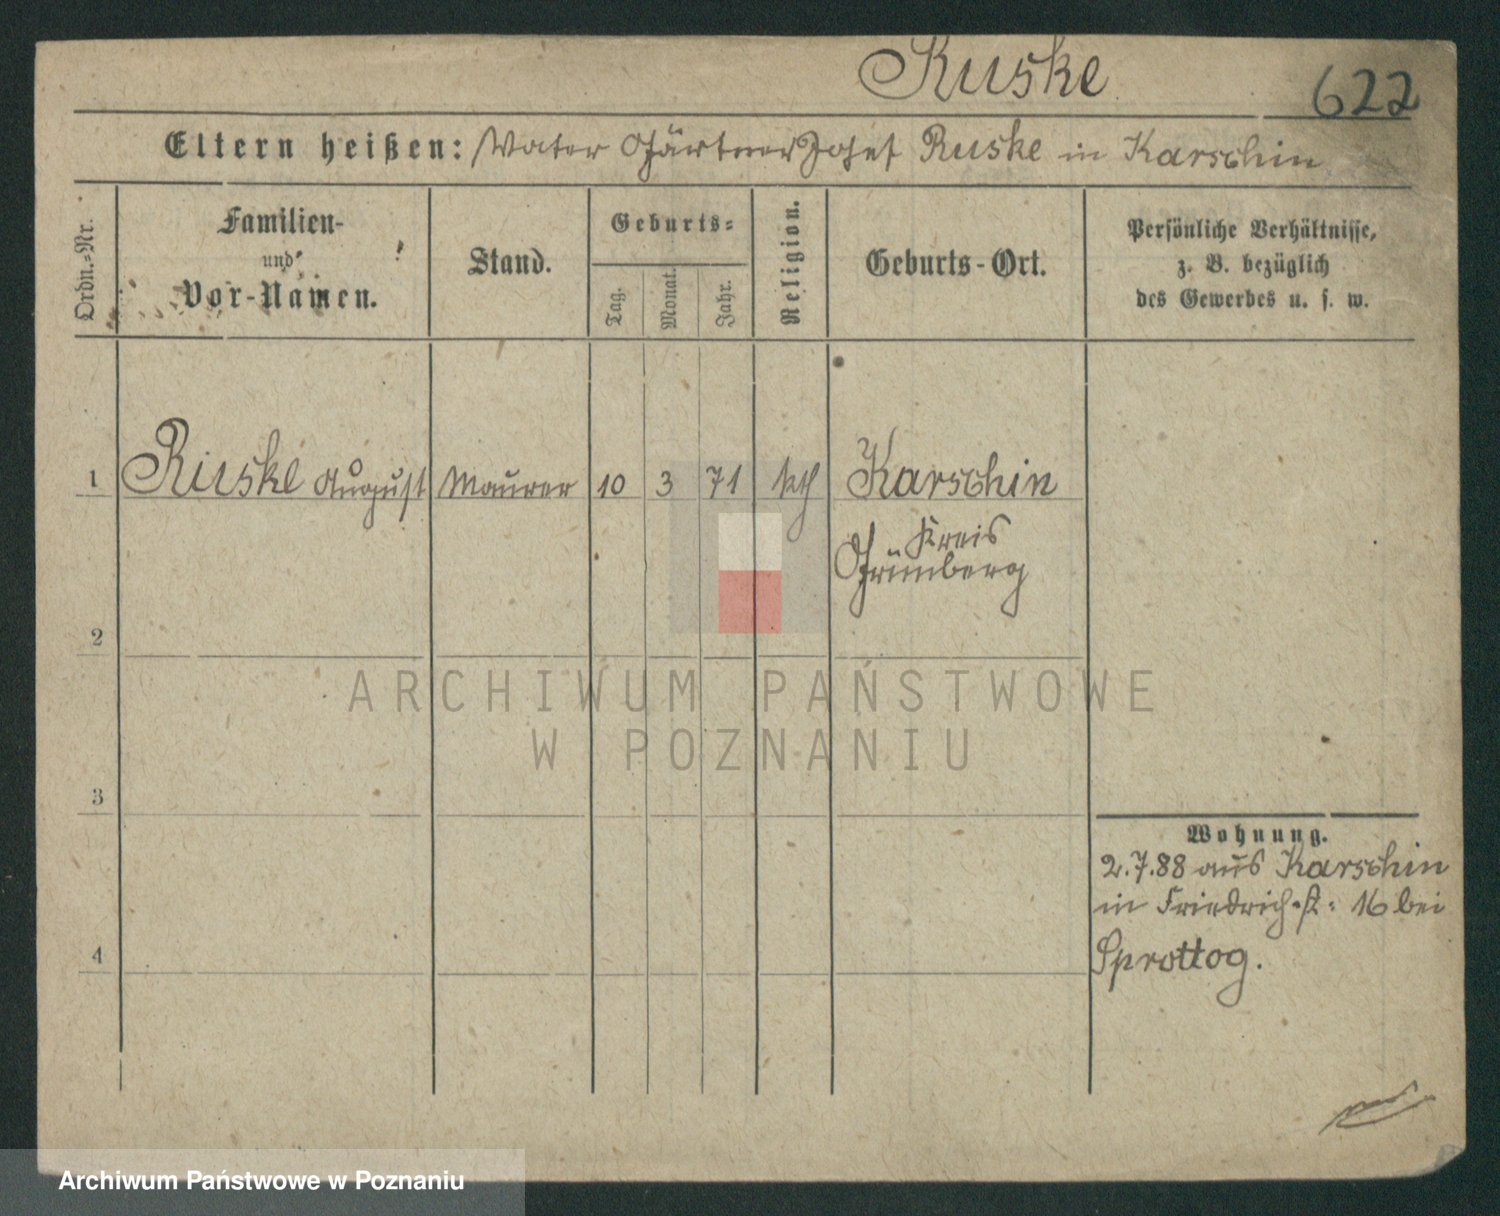 Ruske
622
Eltern heißen: Vater Gärtner Josef Ruske in Karschin
Ordn.-Nr.
Familien-
und
Vor-Namen.
Stand.
Geburts-
Tag.
Monat.
Jahr.
Religion.
Geburts-Ort.
Persönliche Verhältnisse,
z. B. bezüglich
des Gewerbes u. s. w.
1 Ruske August Maurer 10 3 71 kth Karschin
Kreis
Grünberg
2
ARCHIWUM PAŃSTWOWE
W POZNANIU
3
Wohnung.
2.7.88 aus Karschin
in Friedrich-st: 16 bei
4
Sprottog.
Archiwum Państwowe w Poznaniu